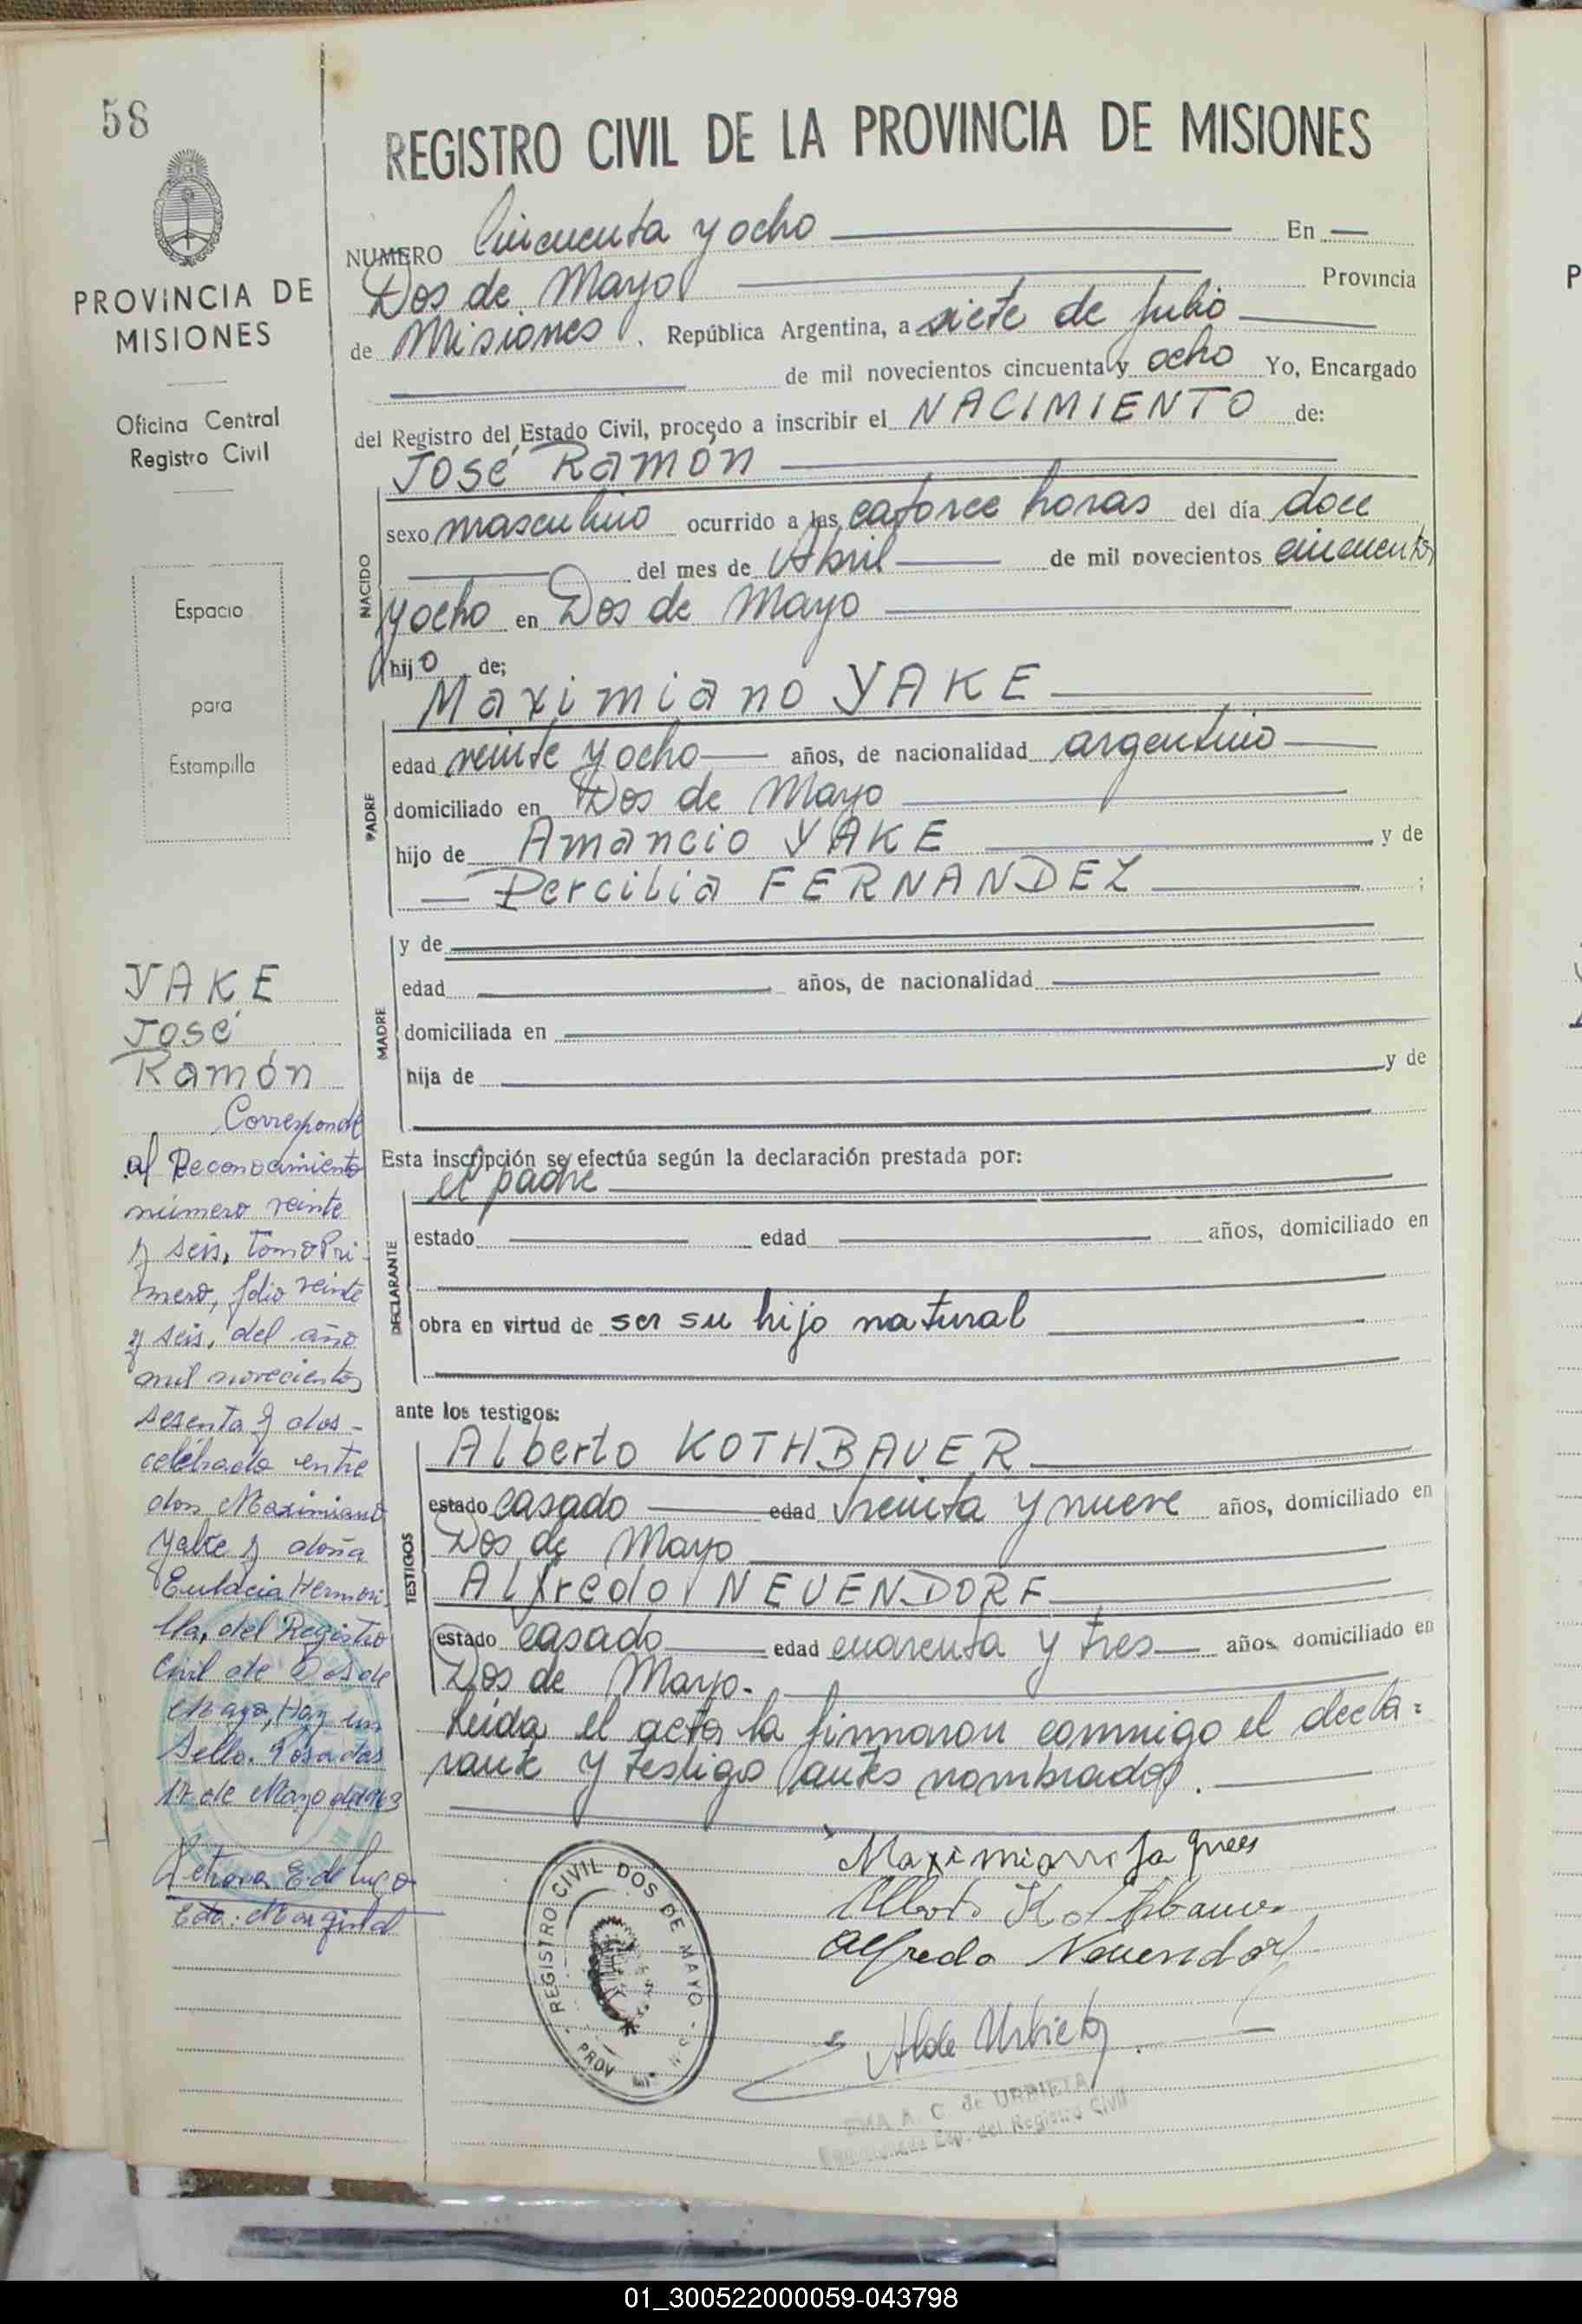 58
PROVINCIA DE
MISIONES
Oficina Central
Registro Civil
Espacio
para
Estampilla
YAKE
José
Ramón
Corresponde
al Reconocimiento
número veinte
y seis, Tomo Pri-
mero, folio veinte
y seis, del año
mil novecientos
sesenta y dos -
celebrado entre
don Maximiano
Yake y doña
Eulacia Hermosi-
lla, del Registro
Civil de Dos de
Mayo, Hay un
Sello. Posadas
de Mayo de 1963
Petrona E. de Lugo
REGISTRO CIVIL DE LA PROVINCIA DE MISIONES
NUMERO Cincuenta y ocho En
Dos de Mayo Provincia
de Misiones, República Argentina, a siete de Julio
de mil novecientos cincuenta y ocho Yo, Encargado
del Registro del Estado Civil, procedo a inscribir el NACIMIENTO de:
José Ramón
NACIDO
sexo masculino ocurrido a las catorce horas del día doce
del mes de Abril de mil novecientos cincuenta
y ocho en Dos de Mayo
hijo de;
Maximiano YAKE
PADRE
edad veinte y ocho años, de nacionalidad argentino
domiciliado en Dos de Mayo
hijo de Amancio YAKE y de
Percilia FERNANDEZ ;
MADRE
y de
edad años, de nacionalidad
domiciliada en
hija de y de
Esta inscripción se efectúa según la declaración prestada por:
el padre
DECLARANTE
estado edad años, domiciliado en
obra en virtud de ser su hijo natural
ante los testigos:
TESTIGOS
Alberto KOTHBAUER
estado casado edad treinta y nueve años, domiciliado en
Dos de Mayo
Alfredo NEUENDORF
estado casado edad cuarenta y tres años, domiciliado en
Dos de Mayo.
Leida el acta la firmaron conmigo el decla=
rante y testigo antes nombrados.
Alberto Kothbauer
Alfredo Neuendorf
REGISTRO CIVIL DOS DE MAYO
PROV
de URBIETA
del Registro Civil
01_300522000059-043798